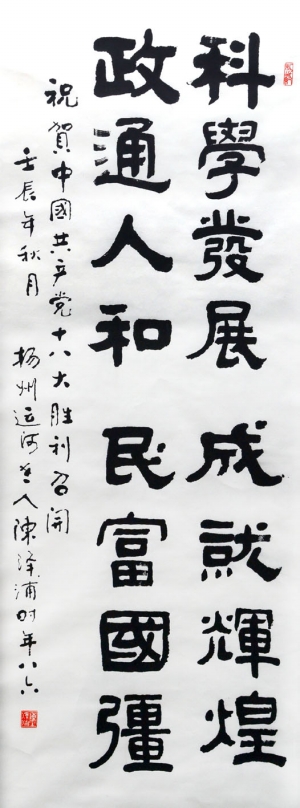 科學發展 成就輝煌
政通人和 民富國疆
祝賀中國共产党十八大胜利召開
壬辰年秋月 揚州运河老人陳濟浦时年八六